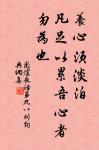 養心須淡泊
凡足以累吾心者
勿為也